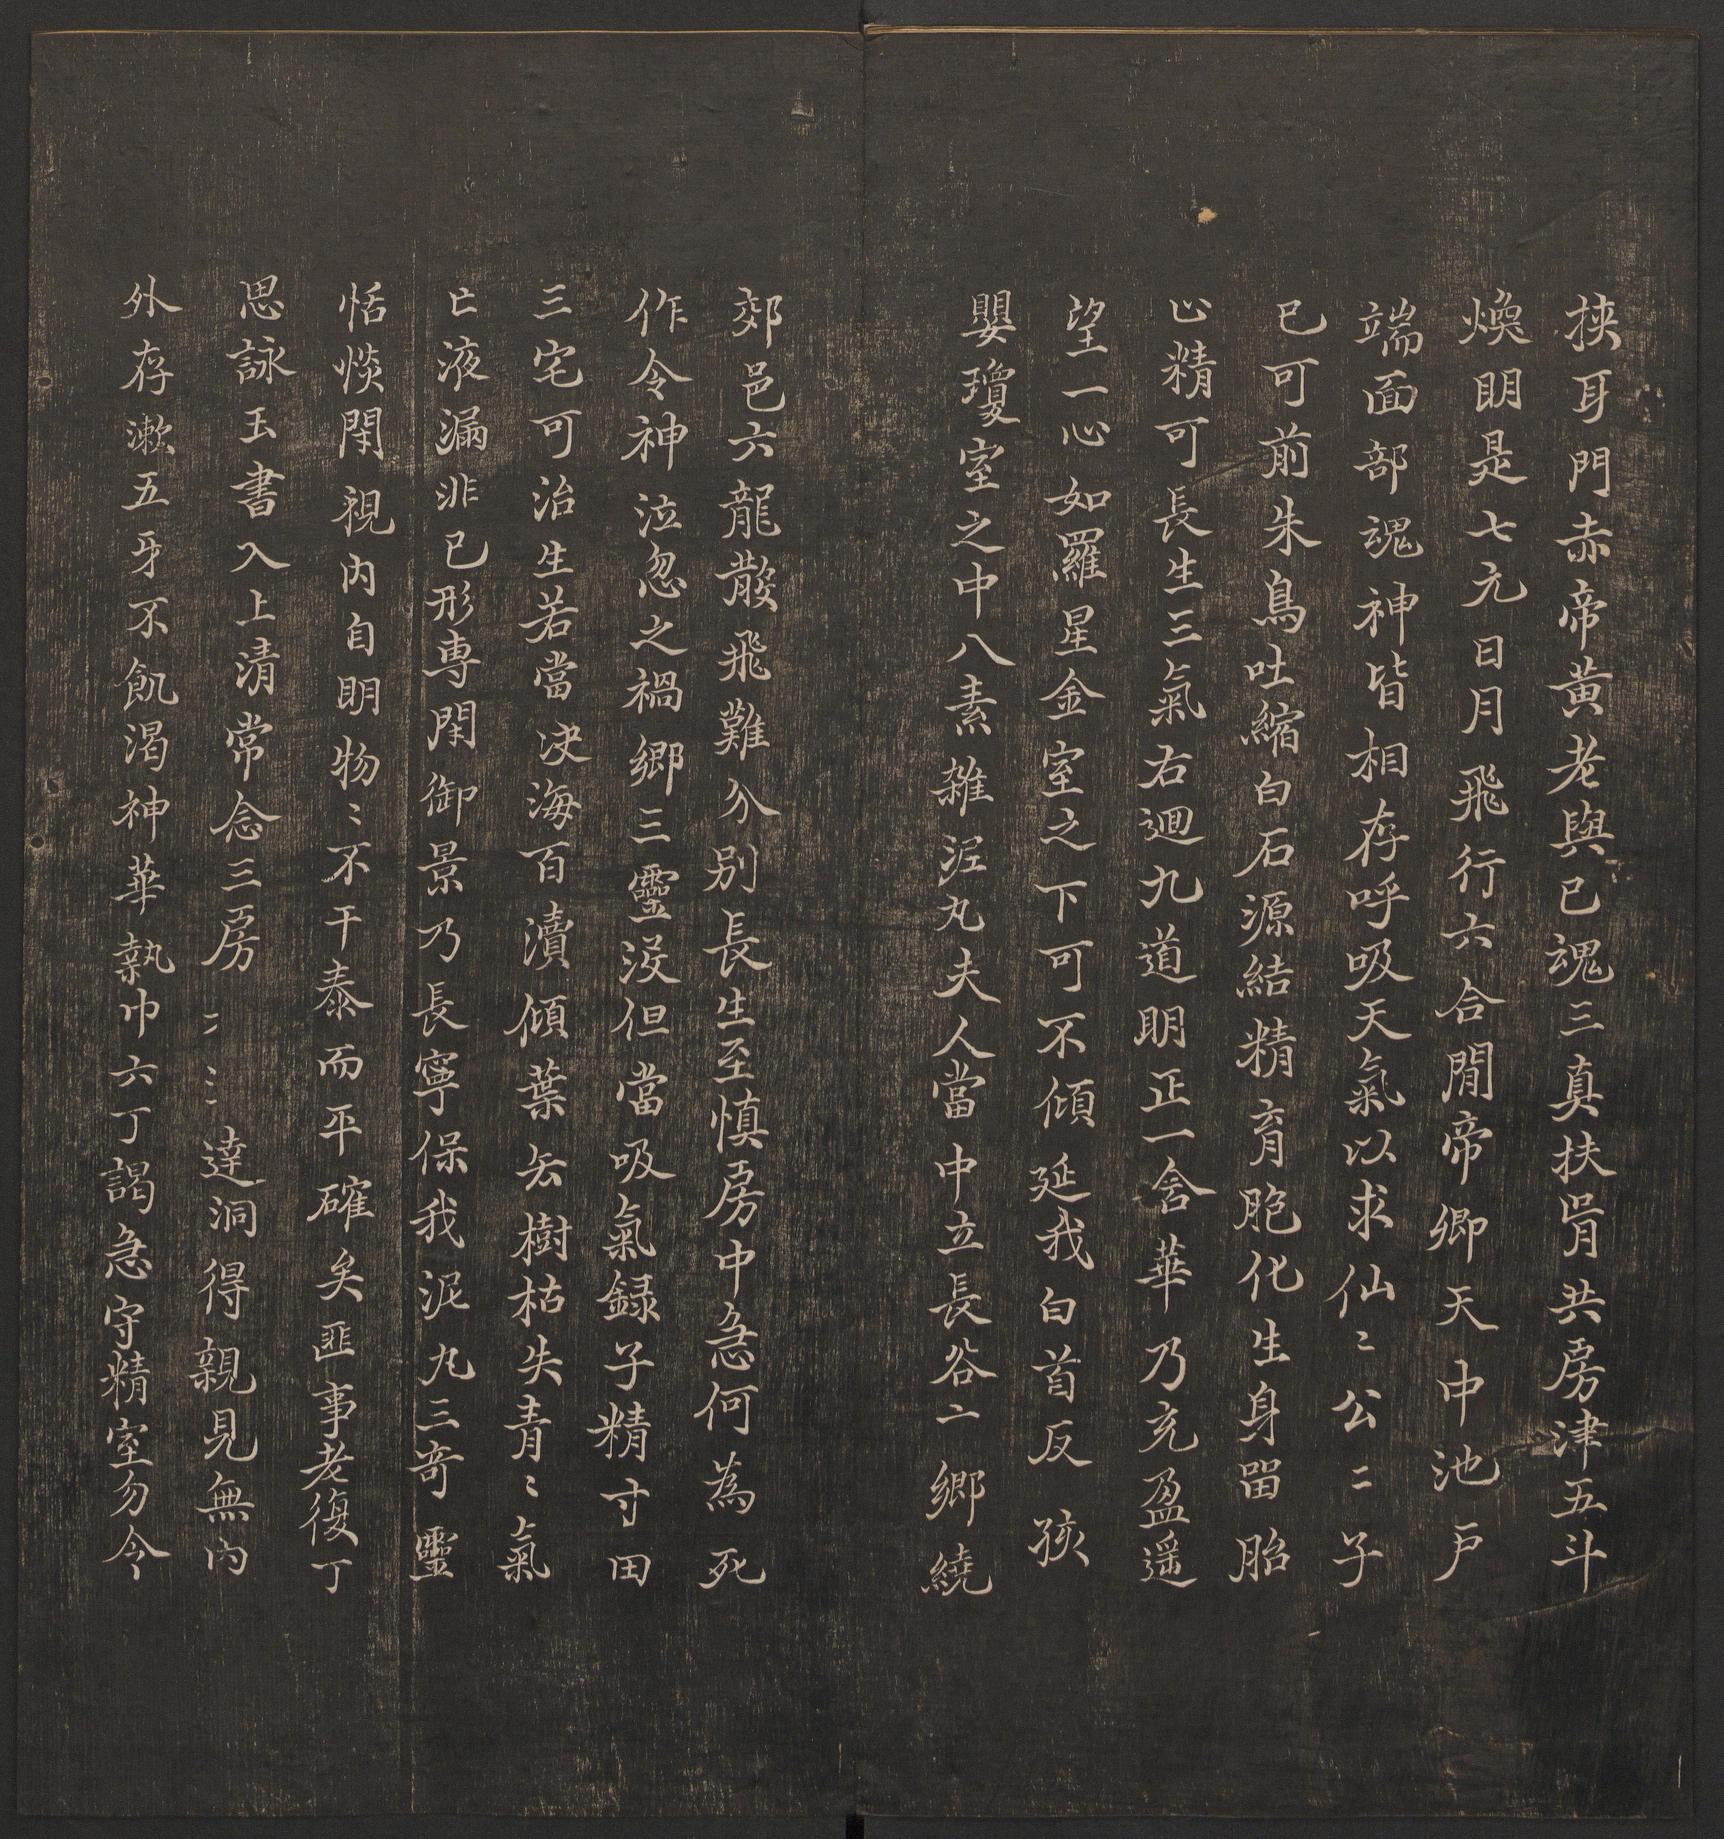 挾耳門赤帝黃老與已魂三真扶胥共房津五斗
煥明是七元日月飛行六合閒帝卿天中池戶
端面部魂神皆相存呼吸天氣以求仙〻公〻子
已可前朱鳥吐縮白石源結精育胞化生身留胎
止精可長生三氣右迴九道明正一含華乃充盈遥
望一心如羅星金室之下可不傾延我白首反孩
嬰瓊室之中八素雜泥丸夫人當中立長谷亠鄉繞
郊邑六龍散飛難分別長生至慎房中急何為死
作令神泣忽之禍鄉三靈没但當吸氣録子精寸田
三宅可治生若當决海百瀆傾葉去樹枯失青〻氣
亡液漏非已形専閑御景乃長寧保我泥丸三奇靈
恬惔閑視内自明物〻不干泰而平確矣匪事老復丁
思詠玉書入上清常念三房〻〻達洞得親見無內
外存漱五牙不飢渴神華執巾六丁謁急守精室勿令